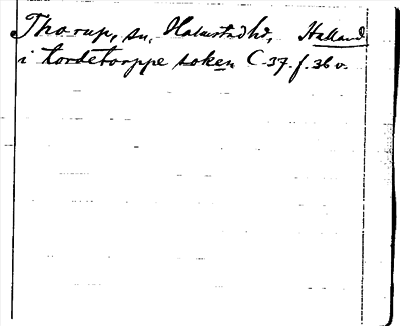 Thorup, sn, Halmstad hd, Halland
i tordetorppe soken C. 37. f. 36 v.